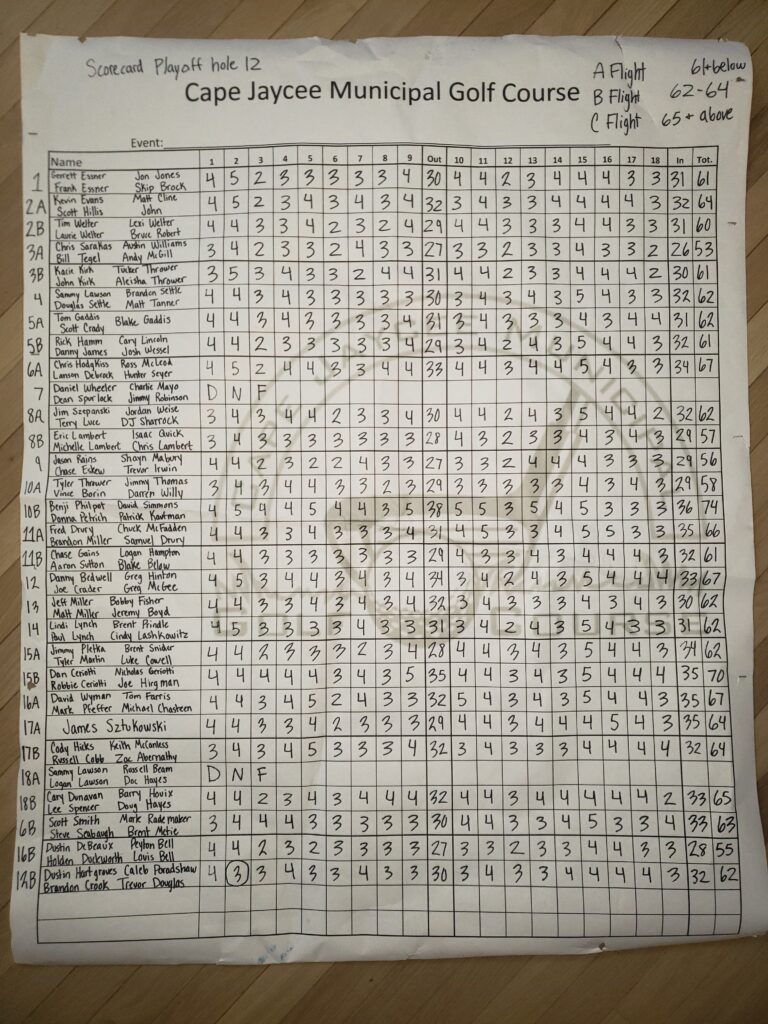 Scorecard Playoff hole 12
A Flight 61+below
B Flight 62-64
C Flight 65+ above
Cape Jaycee Municipal Golf Course
Event:
Name 1 2 3 4 5 6 7 8 9 Out 10 11 12 13 14 15 16 17 18 In Tot.
1 Gerrett Essner Jon Jones 4 5 2 3 3 3 3 3 4 30 4 4 2 3 4 4 4 3 3 31 61
Frank Essner Skip Brock
2A Kevin Evans Matt Cline 4 5 2 3 4 3 4 3 4 32 3 4 3 3 4 4 4 4 3 32 64
Scott Hillis John
2B Tim Welter Lexi Welter 4 4 3 3 4 2 3 2 4 29 4 4 3 3 3 4 4 3 3 31 60
Laurie Welter Bruce Robert
3A Chris Sarakas Austin Williams 3 4 2 3 3 2 4 3 3 27 3 3 2 3 3 4 3 3 2 26 53
Bill Tegel Andy McGill
3B Kacie Kirk Tucker Thrower 3 5 3 4 3 3 2 4 4 31 4 4 2 3 3 4 4 4 2 30 61
John Kirk Aleisha Thrower
4 Sammy Lawson Brandon Settle 4 4 3 4 3 3 3 3 3 30 3 4 3 4 3 5 4 3 3 32 62
Douglas Settle Matt Tanner
5A Tom Gaddis Blake Gaddis 4 4 3 4 3 3 3 3 4 31 3 4 3 3 3 4 3 4 4 31 62
Scott Crady
5B Rick Hamm Cary Lincoln 4 4 2 3 3 3 3 3 4 29 3 4 2 4 3 5 4 4 3 32 61
Danny James Josh Wessel
6A Chris Hodgkiss Ross McLeod 4 5 2 4 4 3 3 4 4 33 4 4 3 4 4 5 4 3 3 34 67
Lanson Debrock Hunter Seyer
7 Daniel Wheeler Charlie Mayo D N F
Dean Spurlock Jimmy Robinson
8A Jim Szepanski Jordan Weise 3 4 3 4 4 2 3 3 4 30 4 4 2 4 3 5 4 4 2 32 62
Terry Luce DJ Sharrock
8B Eric Lambert Isaac Quick 3 4 3 3 3 3 3 3 3 28 4 3 2 3 3 4 3 4 3 29 57
Michelle Lambert Chris Lambert
9 Jason Rains Shayn Mabury 4 4 2 3 2 2 4 3 3 27 3 3 2 4 4 4 3 3 3 29 56
Chase Eskew Trevor Irwin
10A Tyler Thrower Jimmy Thomas 3 4 3 4 4 3 3 2 3 29 3 3 3 3 3 4 3 4 3 29 58
Vince Borin Darren Willy
10B Benji Philpot David Simmons 4 5 4 4 5 4 4 3 5 38 5 5 3 5 4 5 3 3 3 36 74
Donna Petrich Patrick Kaufman
11A Fred Drury Chuck McFadden 4 4 3 3 4 3 3 3 4 31 4 5 3 3 4 5 5 3 3 35 66
Brandon Miller Samuel Drury
11B Chase Gains Logan Hampton 4 4 3 3 3 3 3 3 3 29 4 3 3 4 3 4 4 4 3 32 61
Aaron Sutton Blake Below
12 Danny Bedwell Greg Hinton 4 5 3 4 4 3 4 3 4 34 3 4 2 4 3 5 4 4 4 33 67
Joe Crader Greg McGee
13 Jeff Miller Bobby Fisher 4 4 3 3 4 3 4 3 4 32 3 4 3 3 3 4 3 4 3 30 62
Matt Miller Jeremy Boyd
14 Lindi Lynch Brent Prindle 4 5 3 3 3 3 4 3 3 31 3 4 2 4 3 5 4 3 3 31 62
Paul Lynch Cindy Lashkowitz
15A Jimmy Pletka Brent Snider 4 4 2 3 3 3 2 3 4 28 4 4 3 4 3 5 4 4 3 34 62
Tyler Martin Luke Cowell
15B Dan Ceriotti Nicholas Geriotti 4 4 4 4 4 3 4 3 5 35 4 4 3 4 3 5 4 4 4 35 70
Robbie Ceriotti Joe Hirgman
16A David Wyman Tom Farris 4 4 3 4 5 2 4 3 3 32 5 4 3 4 3 5 4 4 3 35 67
Mark Pfeffer Michael Chasteen
17A James Sztukowski 4 4 3 3 4 2 3 3 3 29 4 4 3 4 4 4 5 4 3 35 64
17B Cody Hicks Keith McCanless 3 4 3 4 5 3 3 3 4 32 3 4 3 3 3 4 4 4 4 32 64
Russell Cobb Zac Abernathy
18A Sammy Lawson Russell Beam D N F
Logan Lawson Doc Hayes
18B Cary Dunavan Barry Hovix 4 4 2 3 4 3 4 4 4 32 4 4 3 4 4 4 4 4 2 33 65
Lee Spencer Doug Hayes
6B Scott Smith Mark Rademaker 3 4 4 4 3 3 3 3 3 30 4 4 3 3 4 5 3 3 4 33 63
Steve Seabaugh Brent Metje
16B Dustin DeBeaux Peyton Bell 4 4 2 3 2 3 3 3 3 27 3 3 2 3 3 4 4 3 3 28 55
Holden Duckworth Louis Bell
12B Dustin Hartgraves Caleb Poradshaw 4 3 3 4 3 3 4 3 3 30 3 4 3 3 4 4 4 4 3 32 62
Brandon Crook Trevor Douglas